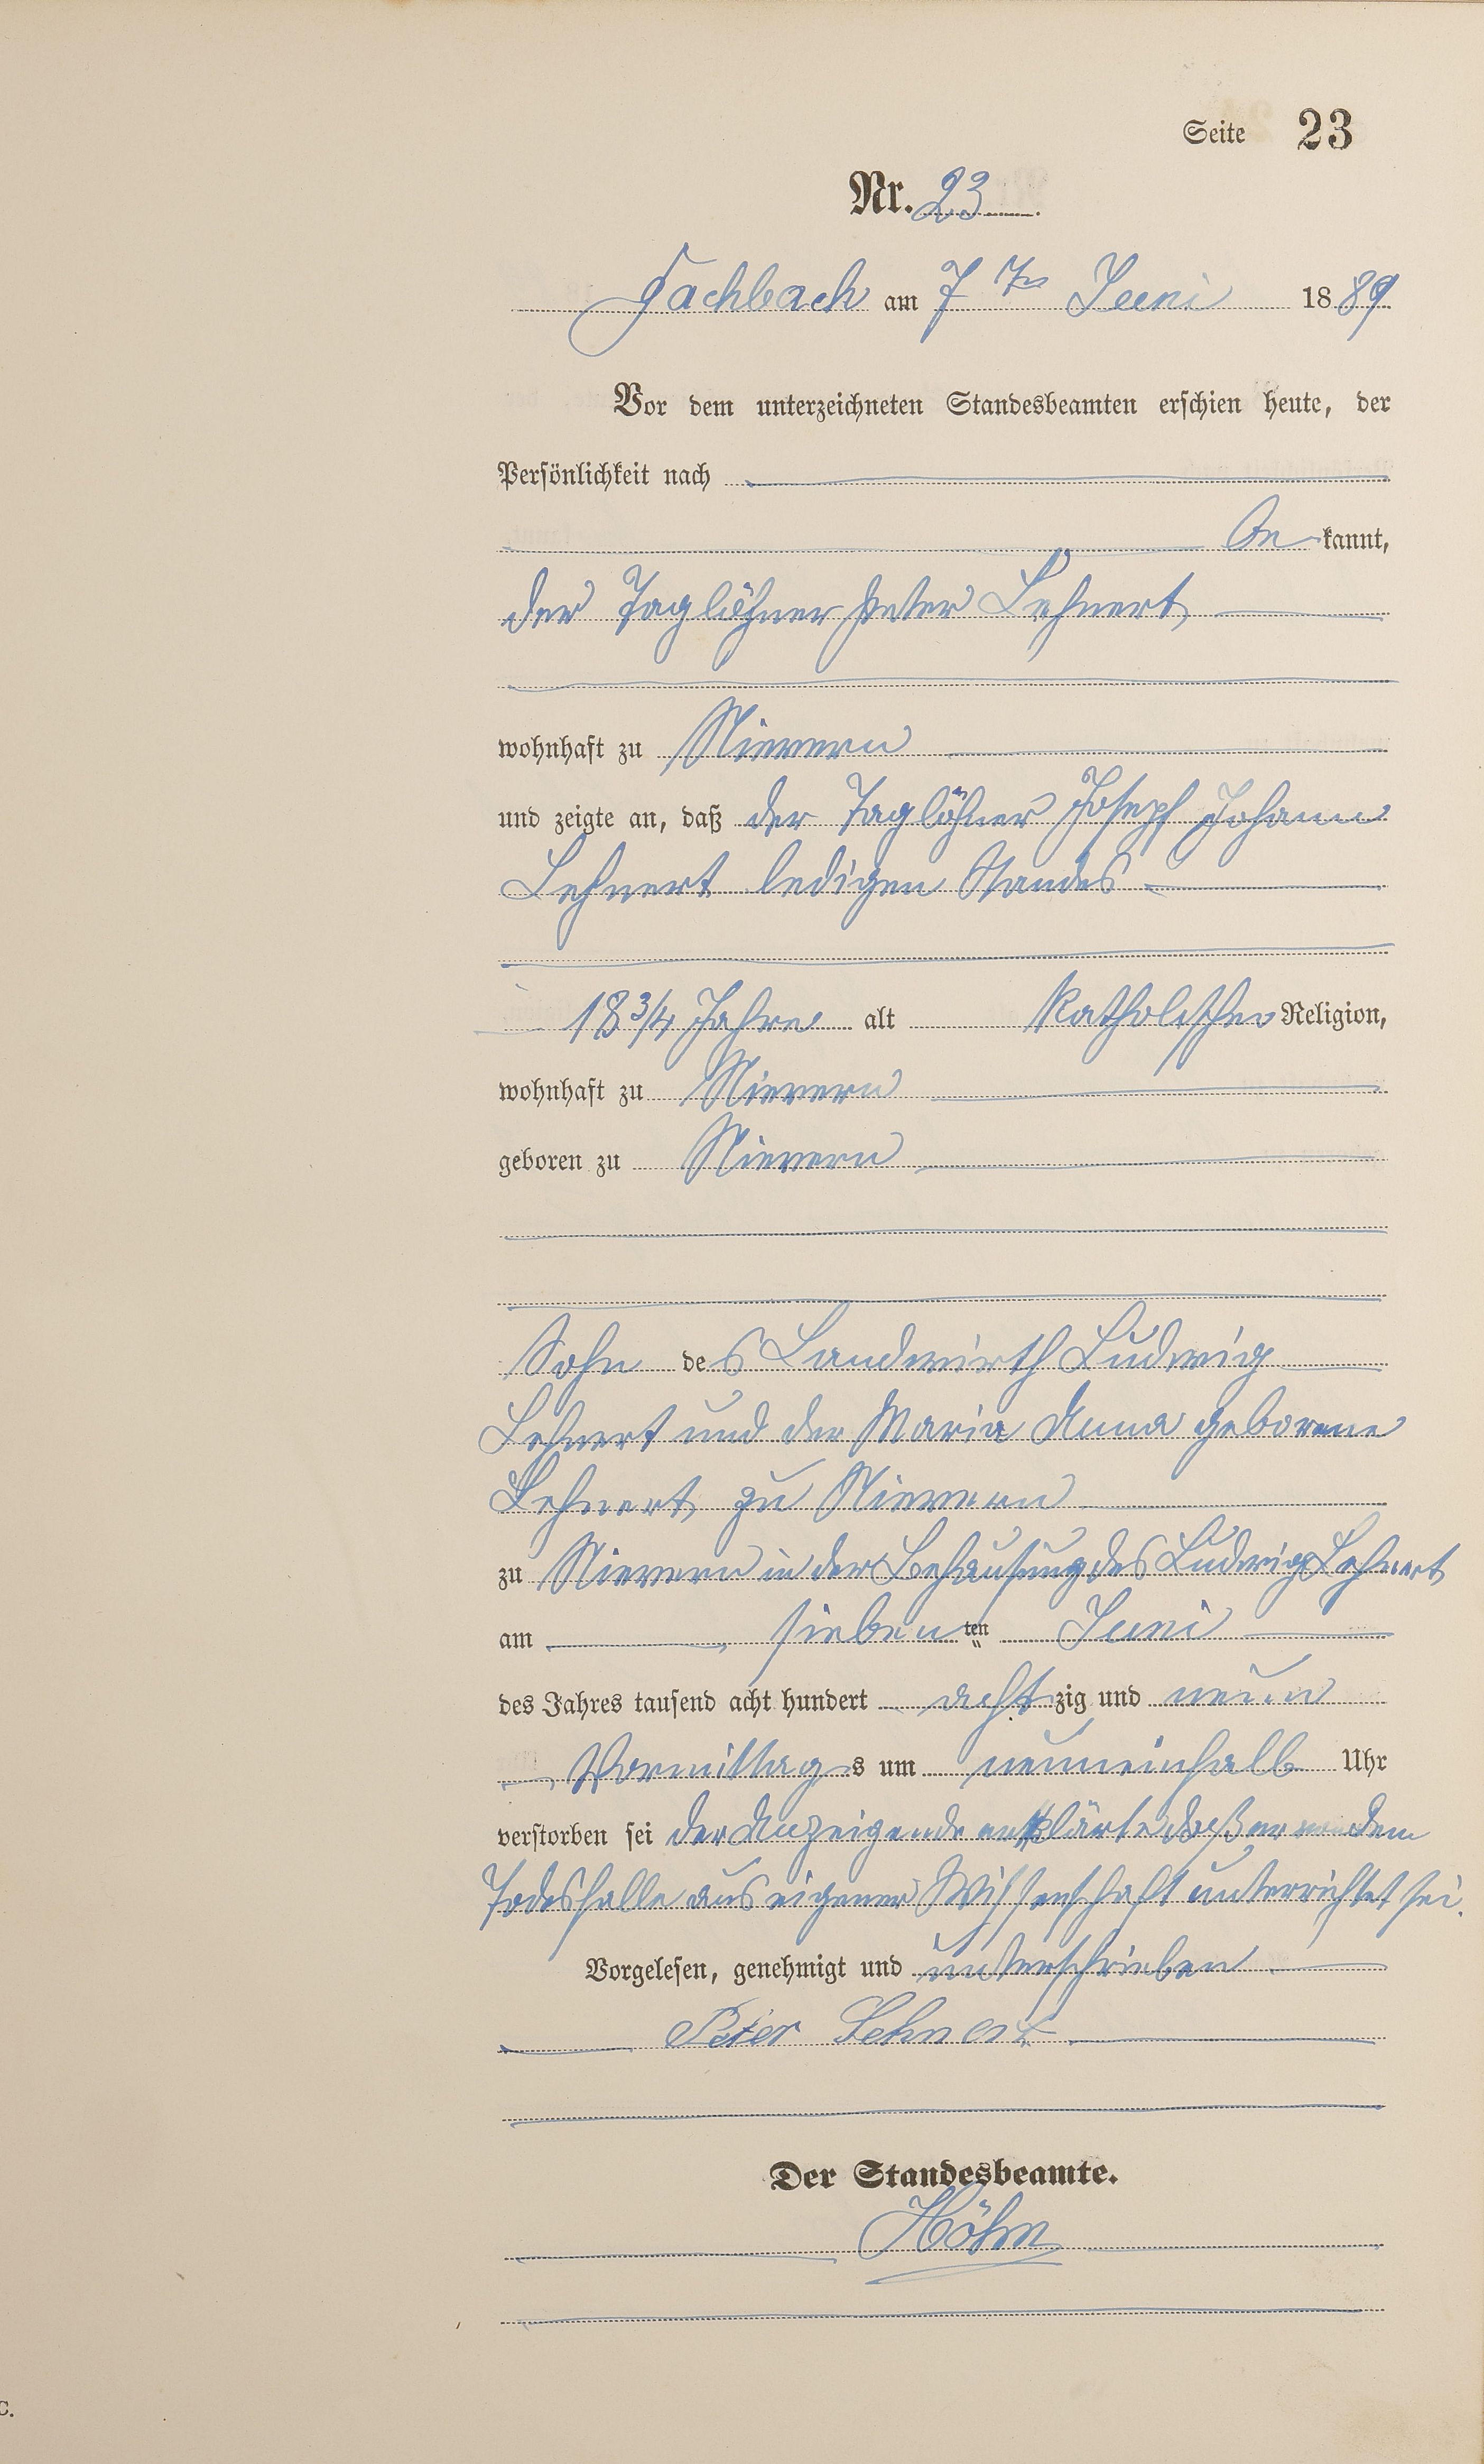 Seite 23
Nr. 23.
Fachbach am 7ten Juni 1889
Vor dem unterzeichneten Standesbeamten erschien heute, der
Persönlichkeit nach
be kannt,
der Taglöhner Peter Lehnert
wohnhaft zu Nievern
und zeigte an, daß der Taglöhner Joseph Johann
Lehnert ledigen Standes
18 3/4 Jahre alt katholischer Religion,
wohnhaft zu Nievern
geboren zu Nievern
Sohn des Landwirth Ludwig
Lehnert und der Maria Anna geborene
Lehnert zu Nievern
zu Nievern in der Behausung des Ludwig Lehnert
am siebenten Juni
des Jahres tausend acht hundert achtzig und neun
Vormittags um neuneinhalb Uhr
verstorben sei der Anzeigende erklärte daß er von dem
Todesfalle aus eigener Wissenschaft unterrichtet sei.
Vorgelesen, genehmigt und unterschrieben
Peter Lehnert
Der Standesbeamte.
Höhn
C.